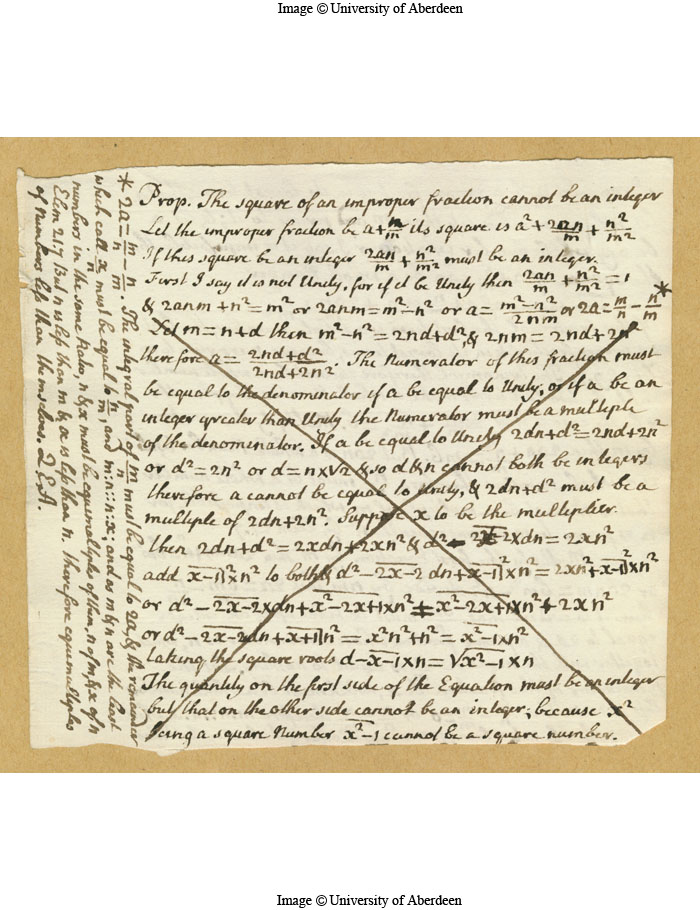 Image © University of Aberdeen
Prop. The square of an improper fraction cannot be an integer
Let the improper fraction be a+n/m its square is a²+2an/m+n²/m²
If this square be an integer 2an/m+n²/m² must be an integer.
First I say it is not Unity, for if it be Unity then 2an/m+n²/m²=1
& 2anm+n²=m² or 2anm=m²-n² or a=m²-n²/2nm or 2a=m/n-n/m*
Let m=n+d then m²-n²=2nd+d², & 2nm=2nd+2n²
therefore a=2nd+d²/2nd+2n². The Numerator of this fraction must
be equal to the denominator if a be equal to Unity, or if a be an
integer greater than Unity the Numerator must be a multiple
of the denominator. If a be equal to Unity 2dn+d²=2nd+2n²
or d²=2n² or d=n×√2 & so d&n cannot both be integers
therefore a cannot be equal to Unity, & 2dn+d² must be a
multiple of 2dn+2n². Suppose x to be the multiplier.
then 2dn+d²=2xdn+2xn² & d²-2x-2×dn=2xn²
add x-1|²×n² to both & d²-2x-2 dn+x-1|²×n²=2xn²+x-1|²×n²
or d²-2x-2×dn+x²-2x+1×n²=x²-2x+1×n²+2xn²
or d²-2x-2dn+x+1|²n²=x²n²+n²=x²-1×n²
taking the square roots d-x-1×n=√x²-1×n
The quantity on the first side of the Equation must be an integer
but that on the other side cannot be an integer; because x²
being a square Number x²-1 cannot be a square number.
* 2a=m/n-n/m. The integral part of m/n must be equal to 2a, & the remainder
which call x/n must be equal to n/m, and m:n::n:x; and as m & n are the least
numbers in the same Ratio, n & x must be equimultiples of them, n of m, & x of n
Elem 21.7 But n is less than m & x is less than n. therefore equimultiples
of Numbers less than themselves. Q.E.A.
Image © University of Aberdeen